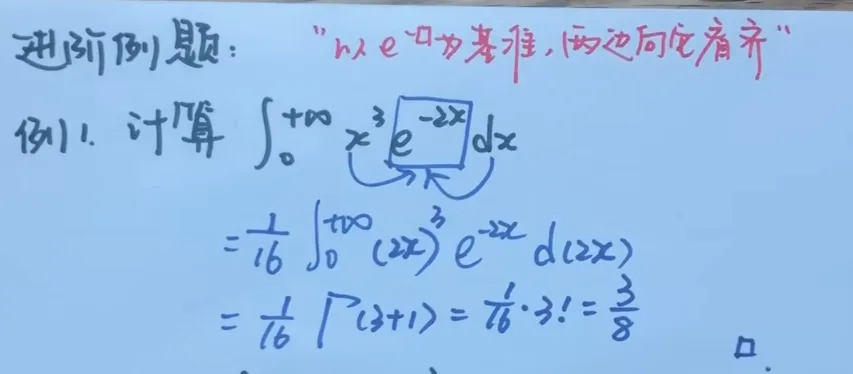 进阶例题： “以 e^{-□} 为基准，两边向它看齐”
例1. 计算 ∫₀^{+∞} x³ e^{-2x} dx
= 1/16 ∫₀^{+∞} (2x)³ e^{-2x} d(2x)
= 1/16 Γ(3+1) = 1/16 · 3! = 3/8
□.